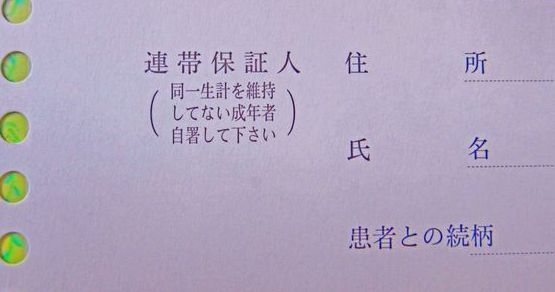 連帯保証人
(同一生計を維持
してない成年者
自署して下さい)
住所
氏名
患者との続柄